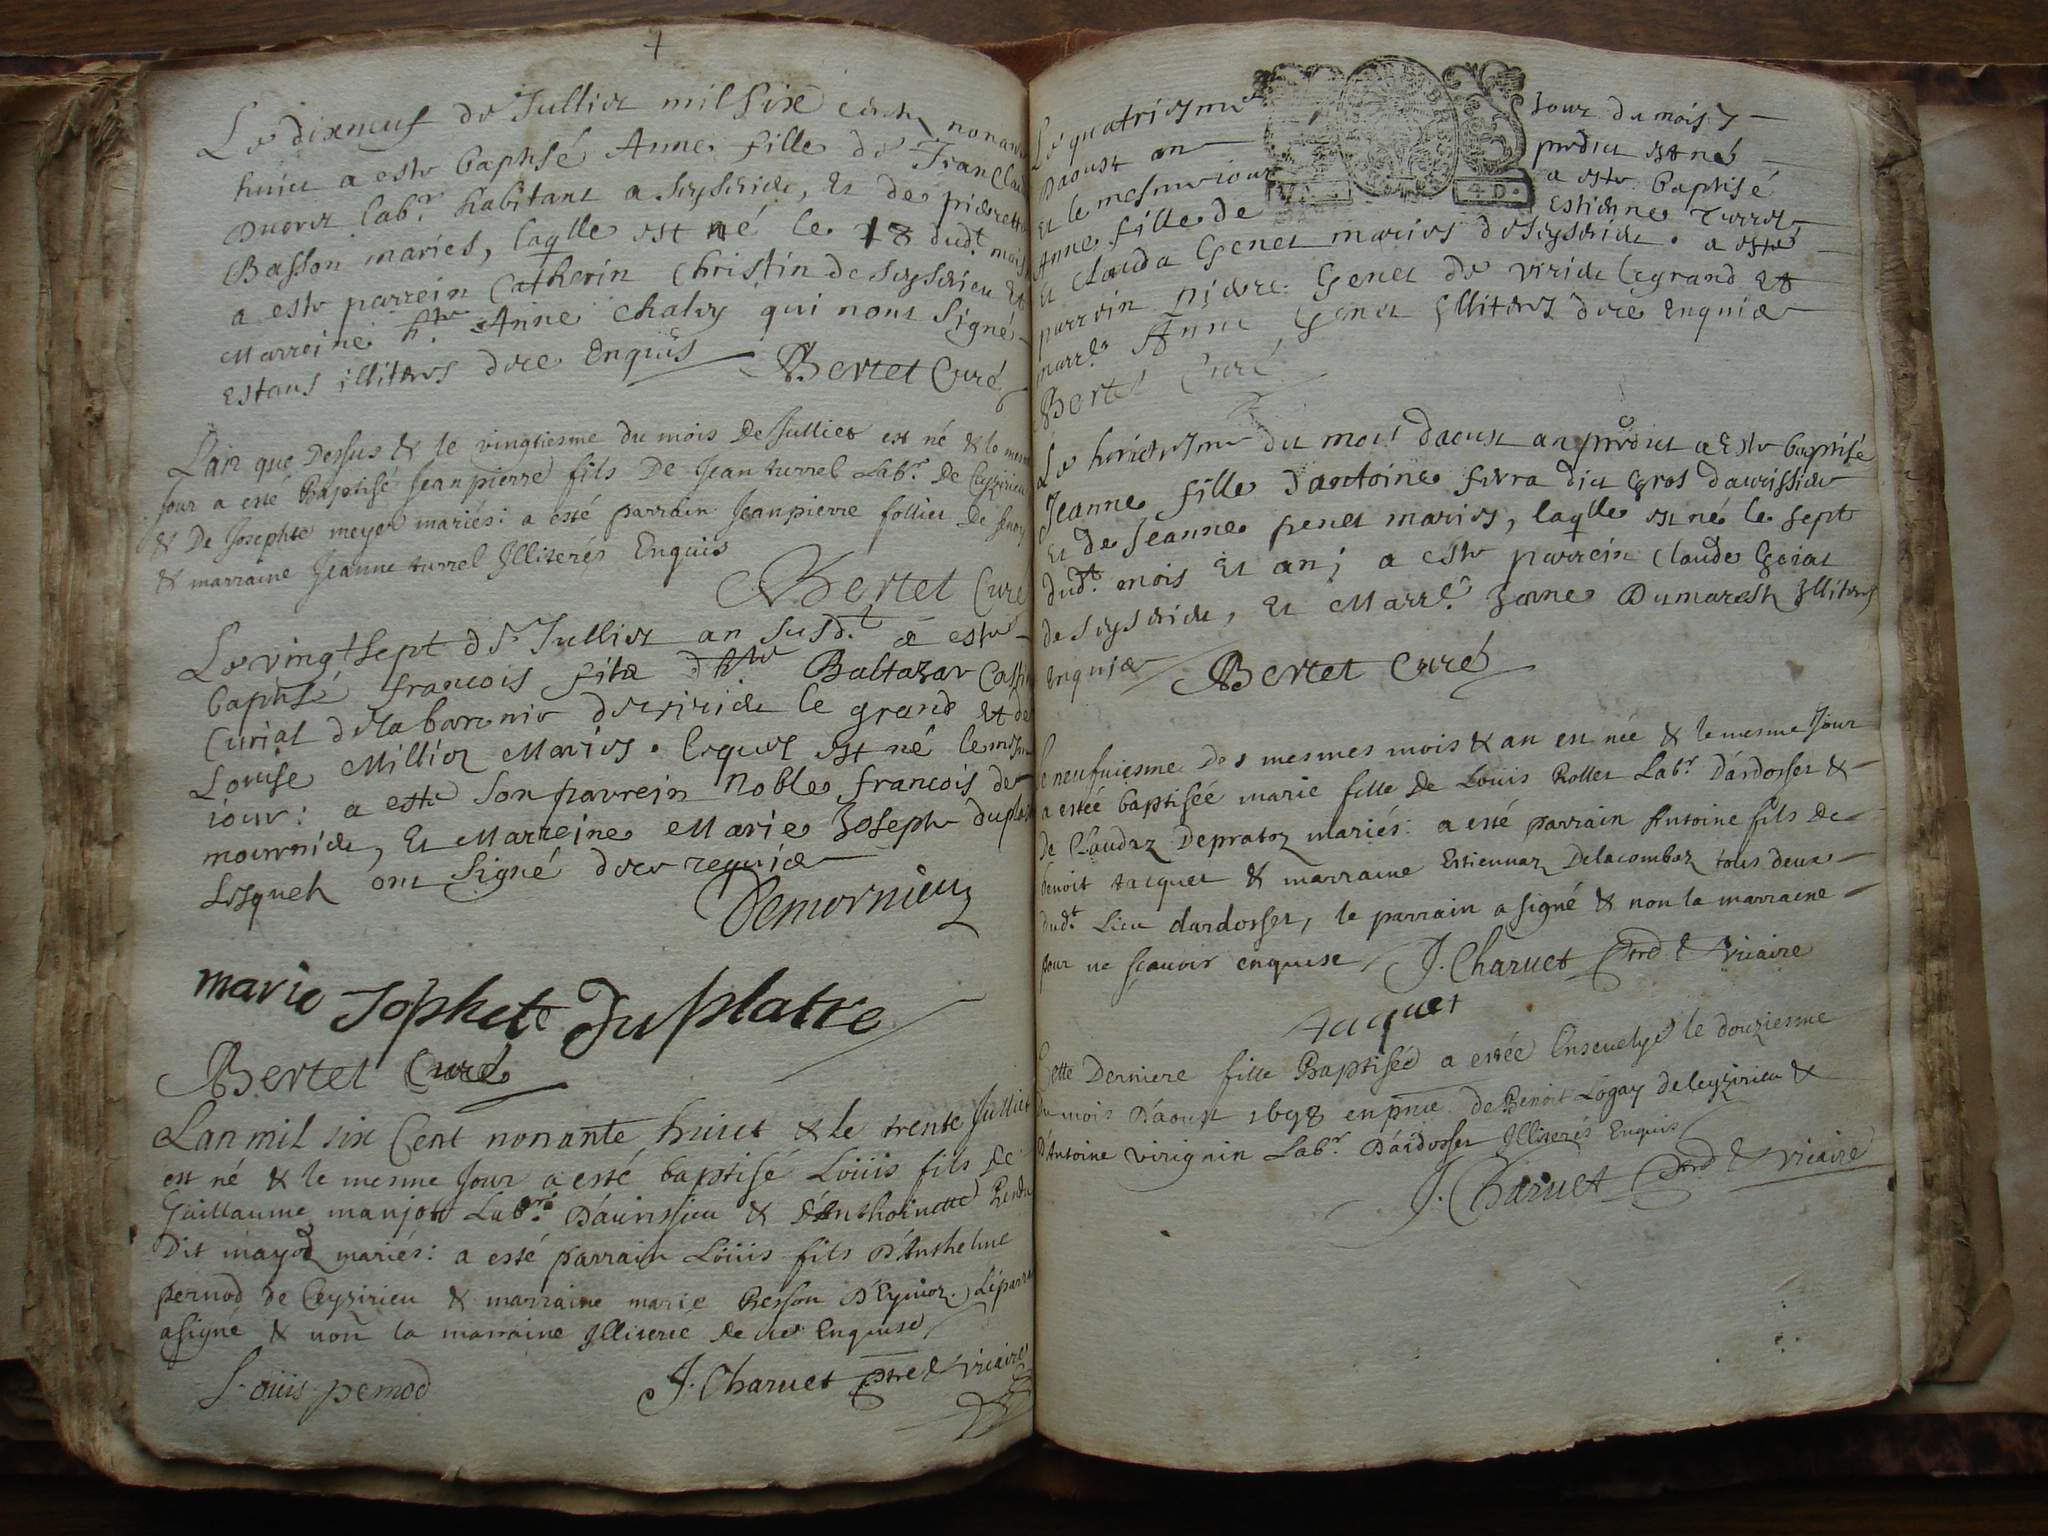 Le dixneuf de Jullier mil six cents nonante
huict a esté baptisé Anne fille de
lab.r habitant a Seyssirieu, Et de pierrette
Basson mariés, laqlle est né le 18 dud.t mois Et
a esté parrein Catherin Christin de Seyssirieu Et
Marreine h.te Anne Chalvy qui nont Signé
estans illiteres de ce Enquis
Bertet Curé
L'an que Dessus & le vingtiesme du mois De Julliet est né & le mesme
Jour a esté Baptisé Jean pierre fils De Jean turrel Lab.r De Ceyzirieu
& De Josephte meyer mariés : a esté parrain Jean pierre follier De
& marraine Jeanne turrel Illiterés Enquis
Bertet Curé
Le vingt sept de Jullier an susd.t a esté
baptisé francois filz d'h.te Baltazar
Curial de la baronnie de virieu le grand Et de
Louise Millior Mariés. lequel est né le mesme
iour : a esté son parrein Noble francois de
mournieu, Et Marreine Marie Joseph duplatre
Lesquels ont Signé de ce requis
Demornieu
marie Jophete Du platre
Bertet Curé
L'an mil six Cent nonante huict & le trente Julliet
est né & le mesme Jour a esté baptisé Loüis fils de
Guillaume manjot Lab.r D'avrissieu & d'Anthoinette
Dit mayod mariés : a esté parrain Loüis fils D'Anthelme
pernod de Ceyzirieu & marraine marie Besson D'Eyuioz. Le parrain
a signe & non la marraine Illiteree de ce Enquise
Louis pernod J. Charuet ptre & vicaire
Le quatriesme Jour du mois
Daoust an predict est né
Et le mesme iour a este baptisé
Anne fille de Estienne Turrel
Et Clauda Genet mariés de Seyssirieu. a esté
parrein pierre Genet de virieu le grand Et
marr.e Anne Genet Illiteres de ce Enquis
Bertet Curé
Le huictiesme du mois daoust an predict a Esté baptisé
Jeanne fille d'antoine favra dict gros d'avrissieu
Et de Jeanne penet mariés, laqlle est né le sept
dud.t mois Et an ; a esté parrein Claude
de Seyssirieu, Et Marr.e Jane Dumarest Illiteres
Enquis Bertet Curé
Le neufuiesme Des mesmes mois & an est née & le mesme Jour
a estée baptiséé marie fille De Loüis Rollet Lab.r D'ardosset &
de Claudaz Depratoz mariés : a esté parrain Antoine fils De
benoit Jacquet & marraine Estiennaz Delacombaz tous deux
dud.t Lieu d'ardosset, le parrain a signé & non la marraine
pour ne scauoir enquise J. Charuet ptre & vicaire
Jacquet
Cette Derniere fille Baptiséé a estée Ensevelye le douziesme
du mois D'aoust 1698 en pnce de Benoit Logay de Ceyzirieu &
D'Antoine virignin Lab.r D'ardosset Illiterés Enquis
J. Charuet ptre & vicaire